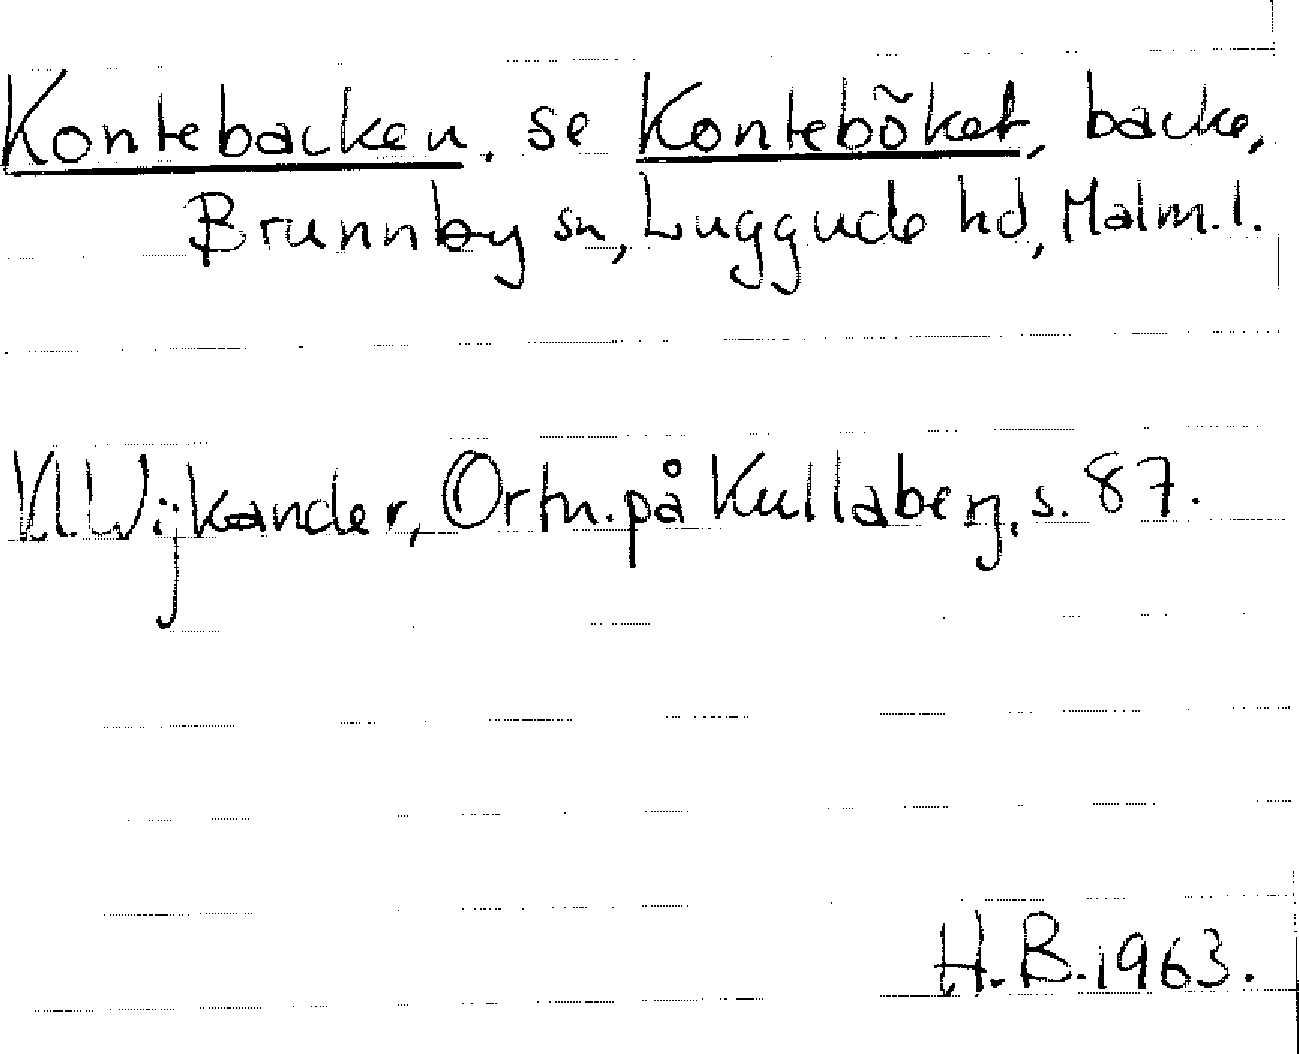 Kontebacken, se Konteböket, backe,
Brunnby sn, Luggude hd, Malm.l.
Kl.Wijkander, Ortn. på Kullaberg, s. 87.
H.B.1963.